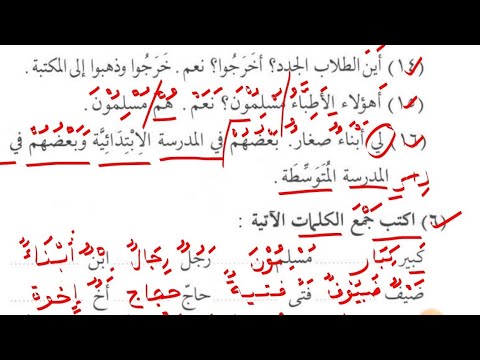 (١٤) أَيْنَ الطلاب الجدد؟ أَخَرَجُوا؟ نعم. خَرَجُوا وذهبوا إلى المكتبة.
(١٥) أَهؤلاء الأَطِبَّاءُ مُسْلِمُونَ؟ نَعَمْ. هُمْ مُسْلِمُونَ.
(١٦) لِي أَبْنَاءٌ صغارٌ. بَعْضُهُمْ في المدرسة الاِبْتِدَائِيَّة وَبَعْضُهُمْ في
المدرسة المُتَوَسِّطة.
(٦) اكتب جَمْعَ الكلمات الآتية :
كَبِير كِبَار مُسْلِم مُسْلِمُوْنَ رَجُلٌ رِجَالٌ ابْنٌ أَبْنَاءٌ
ضَيْفٌ ضُيُوْفٌ فَتًى فِتْيَةٌ حاجّ حجاج أَخٌ إِخْوَة